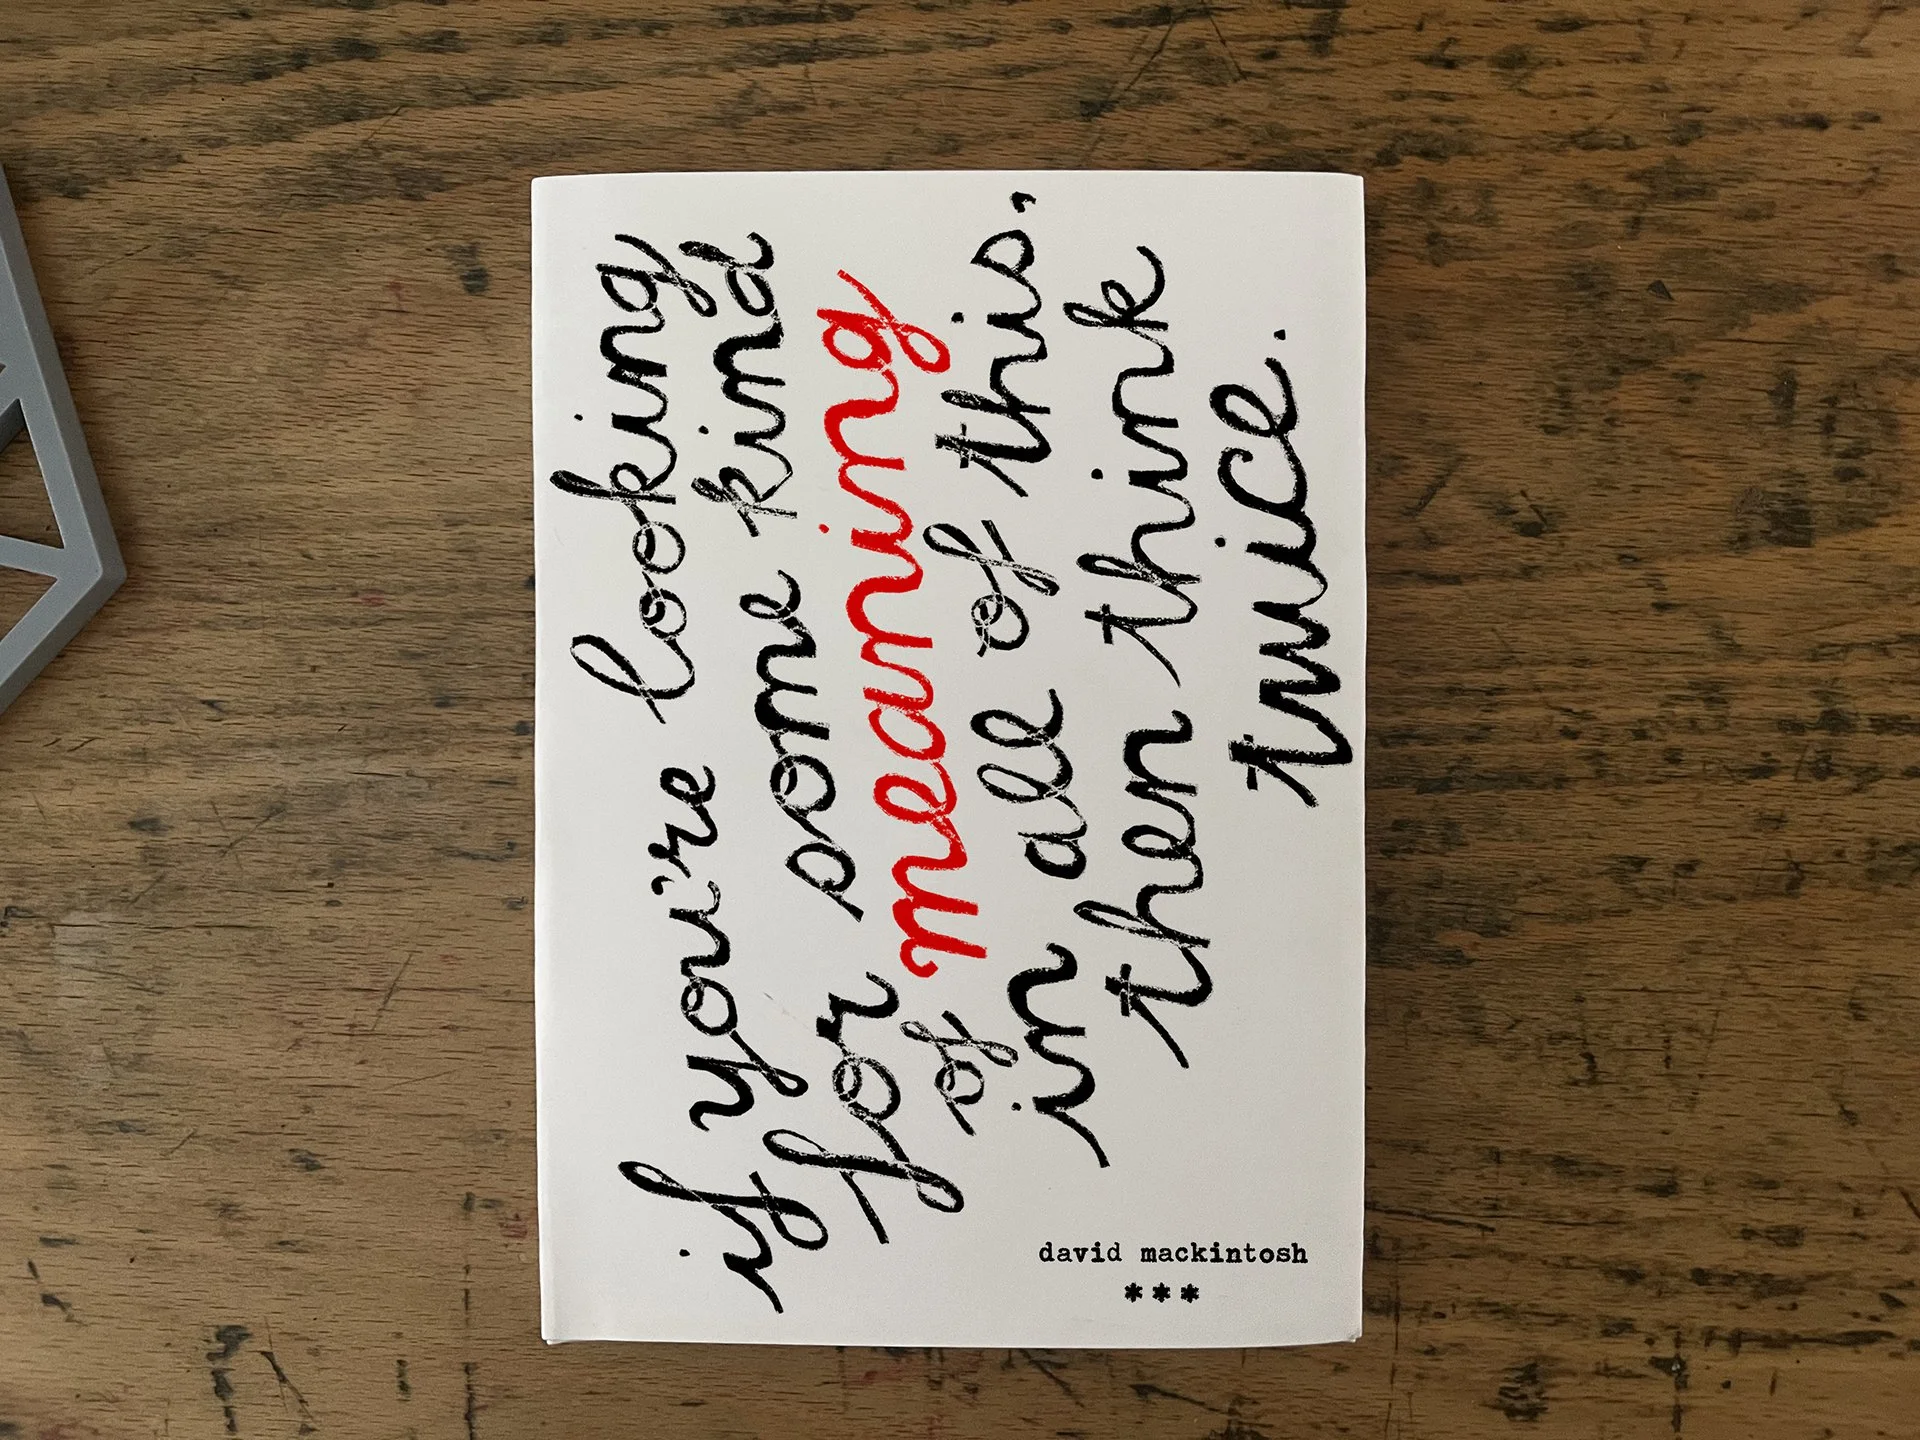 if you're looking
for some kind
of meaning
in all of this,
then think
twice.
david mackintosh
***